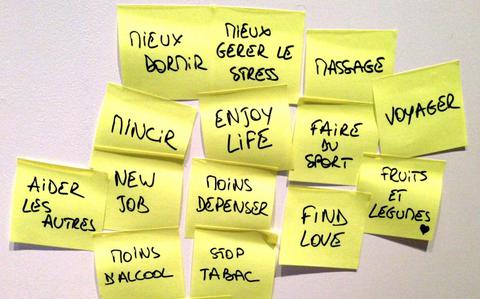 MIEUX
DORMIR
MIEUX
GERER LE
STRESS
MASSAGE
VOYAGER
MINCIR
ENJOY
LIFE
FAIRE
DU
SPORT
AIDER
LES
AUTRES
NEW
JOB
MOINS
DEPENSER
FIND
LOVE
FRUITS
ET
LEGUMES
MOINS
D'ALCOOL
STOP
TABAC